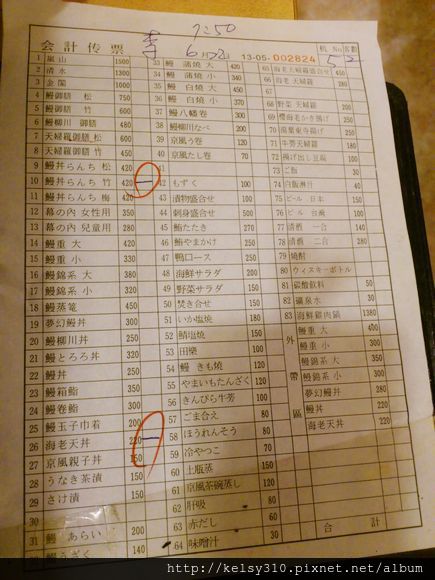 7:50
会計伝票
李
6月22日
13-05-002824
机 No 客數
5 2
1 嵐山 1500
2 清水 1300
3 金閣 1000
4 鰻御膳 松 750
5 鰻御膳 竹 600
6 鰻柳川 御膳 480
7 天婦羅御膳 松
8 天婦羅御膳 竹 450
9 鰻丼らんち 松 420
10 鰻丼らんち 竹 420 一
11 鰻丼らんち 梅 420
12 幕の內 女性用 350
13 幕の內 兒童用 280
14 鰻重 大 420
15 鰻重 小 330
16 鰻錦系 大 380
17 鰻錦系 小 320
18 鰻蒸篭 450
19 夢幻鰻丼 380
20 鰻柳川丼 320
21 鰻とろろ丼 320
22 鰻丼 320
23 鰻箱鮨 350
24 鰻卷鮨 300
25 鰻玉子巾着 200
26 海老天丼 220 一
27 京風親子丼 150
28 うなき茶漬 150
29 さけ漬 150
30
31 鰻 あらい 200
鰻うざく 140
33 鰻 蒲焼 大 420
34 鰻 蒲焼 小 340
35 鰻 白焼 大
36 鰻 白焼 小 370
37 鰻八幡卷
38 鰻柳川なべ
39 京風う卷
40 京風たし卷 70
41
42 もずく
43 漬物盛合せ
44 刺身盛合せ
45 鮪たたき
46 鮪やまかけ
47 鴨ロース
48 海鮮サラダ 200
49 野菜サラダ 150
50 焚き合せ
51 いか塩焼 180
52 鯖塩焼 150
53 田樂 100
54 鰻 きも焼 120
55 やまいもたんざく
56 きんぴら牛蒡 100
57 ごま合え 80
58 ほうれんそう 80
59 冷やつこ 70
60 土瓶蒸し 150
61 京風茶碗蒸し 100
62 肝吸 80
63 赤だし 60
64 味噌汁 30
65 海老天婦羅盛合せ 450
66 海老 天婦羅
67
68 野菜 天婦羅 200
69 櫻海老かき揚げ
70 湯葉東寺揚げ
71 牛蒡天婦羅
72 揚げ出し豆腐
73 ご飯
74 白飯淋汁
75 ビール 日本
76 ビール 台灣
77 清酒 一合 140
78 清酒 二合 280
79 焼酎
80 ウィスキーボトル
81 碳酸飲料 50
82 礦泉水 30
83 海鮮雞肉鍋 1380
外帶區
鰻重 大 400
鰻重 小 300
鰻錦系 大 350
鰻錦系 小 300
夢幻鰻丼 280
鰻丼
海老天丼
合計
http://kelsy310.pixnet.net/album